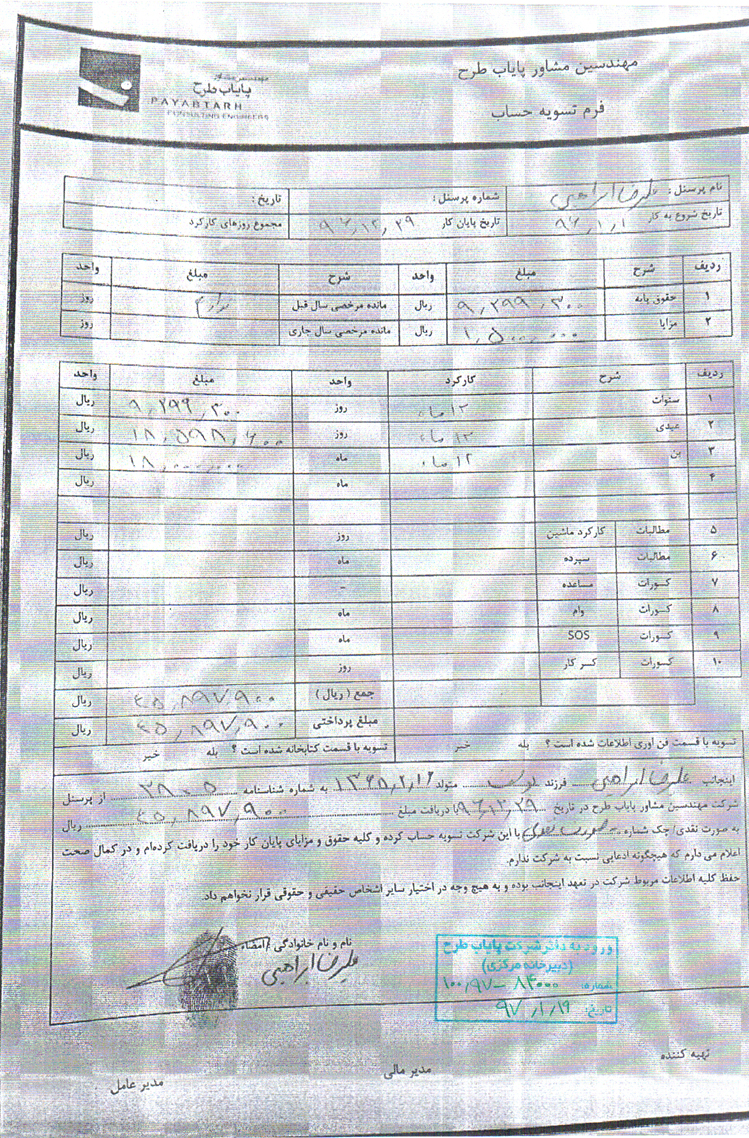 مهندسین مشاور پایاب طرح
فرم تسویه حساب
مهندسین مشاور
پایاب طرح
PAYABTARH
CONSULTING ENGINEERS
نام پرسنل : علیرضا ابراهیمی شماره پرسنل : تاریخ :
تاریخ شروع به کار ۹۶/۱/۱ تاریخ پایان کار ۹۶/۱۲/۲۹ مجموع روزهای کارکرد
ردیف شرح مبلغ واحد شرح مبلغ واحد
۱ حقوق پایه ۹,۲۹۹,۳۰۰ ریال مانده مرخصی سال قبل روز
۲ مزایا ۱,۵۰۰,۰۰۰ ریال مانده مرخصی سال جاری روز
ردیف شرح کارکرد واحد مبلغ واحد
۱ سنوات ۱۲ ماه روز ۹,۲۹۹,۳۰۰ ریال
۲ عیدی ۱۲ ماه روز ۱۸,۵۹۸,۶۰۰ ریال
۳ بن ۱۲ ماه ماه ۱۸,۰۰۰,۰۰۰ ریال
۴ ماه ریال
۵ مطالبات کارکرد ماشین روز ریال
۶ مطالبات سپرده ماه ریال
۷ کسورات مساعده - ریال
۸ کسورات وام ماه ریال
۹ کسورات SOS ماه ریال
۱۰ کسورات کسر کار روز ریال
جمع ( ریال ) ۴۵,۸۹۷,۹۰۰ ریال
مبلغ پرداختی ۴۵,۸۹۷,۹۰۰ ریال
تسویه با قسمت فن آوری اطلاعات شده است ؟ بله خیر تسویه با قسمت کتابخانه شده است ؟ بله خیر
اینجانب علیرضا ابراهیمی فرزند متولد ۱۳۶۵/۲/۱۲ به شماره شناسنامه ۳۸۰۵ از پرسنل
شرکت مهندسین مشاور پایاب طرح در تاریخ ۹۶/۱۲/۲۹ با دریافت مبلغ ۴۵,۸۹۷,۹۰۰ ریال
به صورت نقدی/ چک شماره با این شرکت تسویه حساب کرده و کلیه حقوق و مزایای پایان کار خود را دریافت کرده‌ام و در کمال صحت
اعلام می دارم که هیچگونه ادعایی نسبت به شرکت ندارم.
حفظ کلیه اطلاعات مربوط شرکت در تعهد اینجانب بوده و به هیچ وجه در اختیار سایر اشخاص حقیقی و حقوقی قرار نخواهم داد.
نام و نام خانوادگی / امضاء
علیرضا ابراهیمی
ورود به دفتر شرکت پایاب طرح
(دبیرخانه مرکزی)
شماره: ۱۰۰/۹۷-۸۲۰۰۰
تاریخ: ۹۷/۱/۱۹
تهیه کننده مدیر مالی مدیر عامل